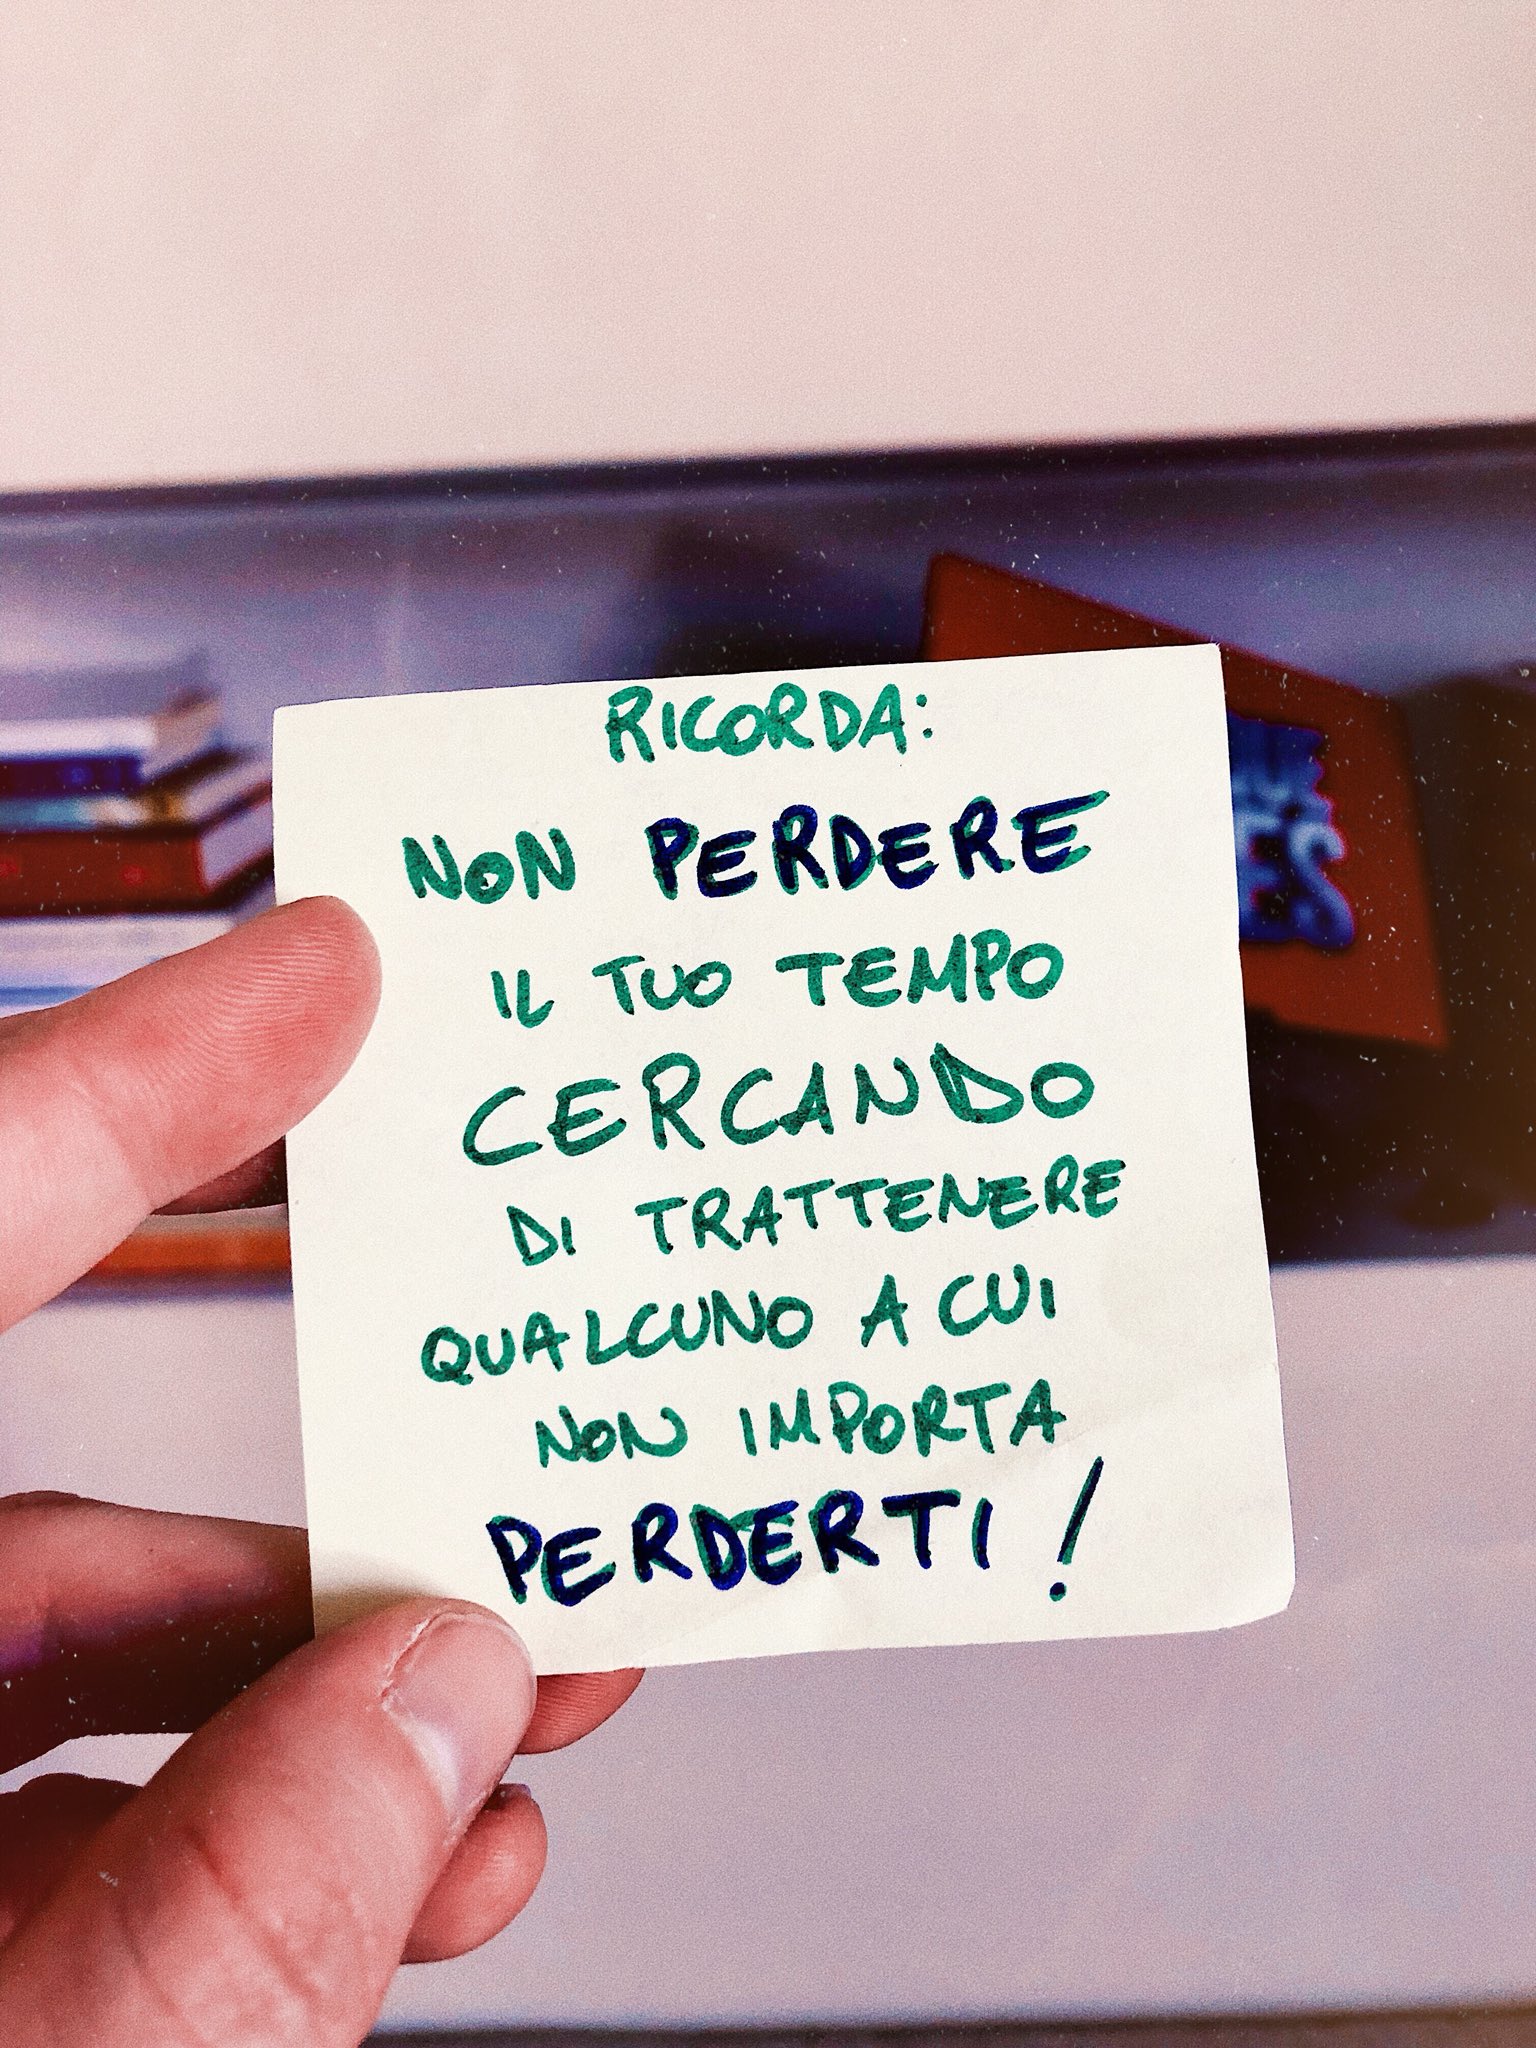 RICORDA:
NON PERDERE
IL TUO TEMPO
CERCANDO
DI TRATTENERE
QUALCUNO A CUI
NON IMPORTA
PERDERTI!